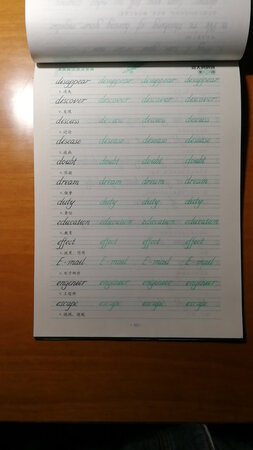 disappear disappear disappear disappear
v. 消失
discover discover discover discover
v. 发现
discuss discuss discuss discuss
v. 讨论
disease disease disease disease
n. 疾病
doubt doubt doubt doubt
dream dream dream dream
duty duty duty duty
n. 责任
education education education education
n. 教育
effect effect effect effect
n. 效果, 作用
E-mail E-mail E-mail E-mail
n. 电子邮件
engineer engineer engineer engineer
n. 工程师
escape escape escape escape